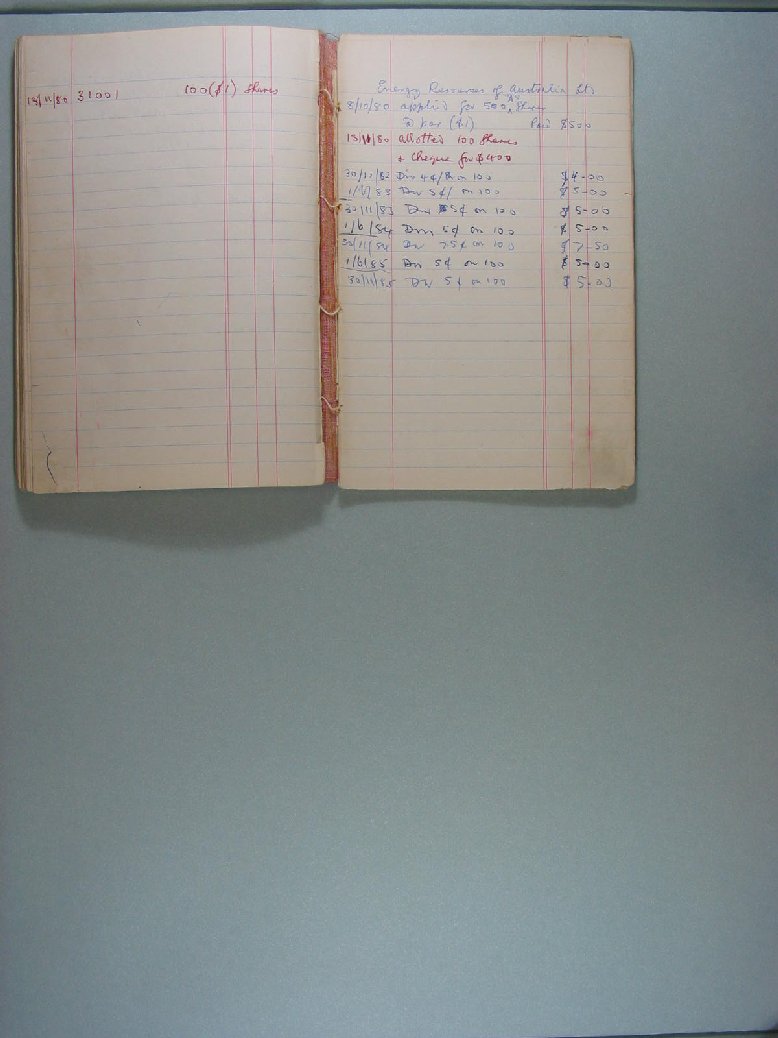 13/11/80 31001 100 ($1) Shares
Energy Resources of Australia Ltd
8/10/80 applied for 500 "A" Shares
@ par ($1) Paid $500
13/11/80 allotted 100 Shares
+ Cheque for $400
30/11/82 Div 4¢/ on 100 $4-00
1/6/83 Div 5¢/ on 100 $5-00
30/11/83 Div 5¢ on 100 $5-00
1/6/84 Div 5¢ on 100 $5-00
30/11/84 Div 7.5¢ on 100 $7-50
1/6/85 Div 5¢ on 100 $5-00
30/11/85 Div 5¢ on 100 $5-00